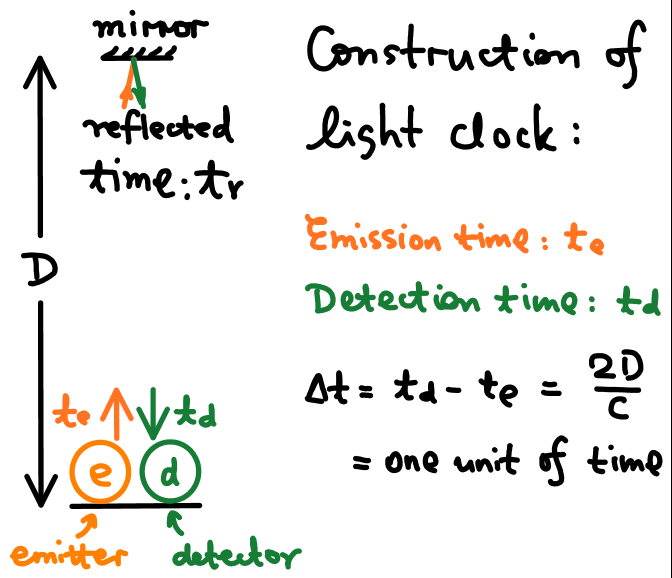 mirror
reflected
time: tr
D
te
td
e
d
emitter
detector
Construction of
light clock:
Emission time: te
Detection time: td
Δt = td - te = 2D/c
= one unit of time